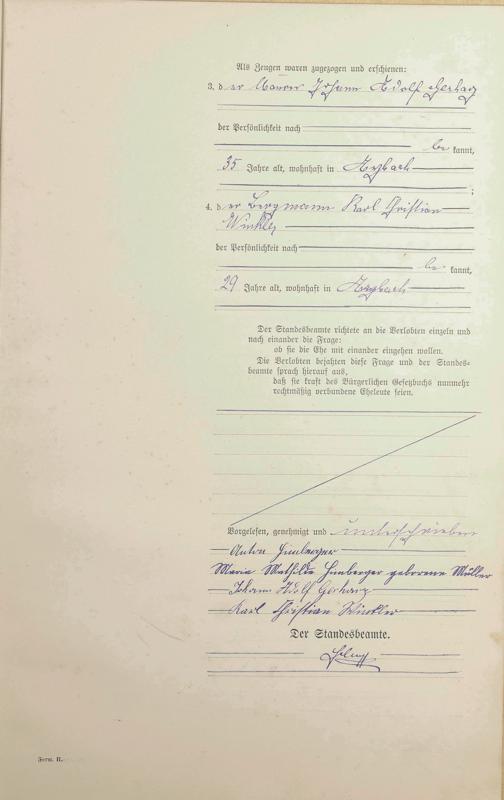 Als Zeugen waren zugezogen und erschienen:
3. der Maurer Johann Adolf Gerharz
der Persönlichkeit nach
be kannt,
35 Jahre alt, wohnhaft in Arzbach
;
4. der Bergmann Karl Christian
Winkler
der Persönlichkeit nach
be kannt,
29 Jahre alt, wohnhaft in Arzbach
Der Standesbeamte richtete an die Verlobten einzeln und
nach einander die Frage:
ob sie die Ehe mit einander eingehen wollen.
Die Verlobten bejahten diese Frage und der Standes-
beamte sprach hierauf aus,
daß sie kraft des Bürgerlichen Gesetzbuchs nunmehr
rechtmäßig verbundene Eheleute seien.
Vorgelesen, genehmigt und unterschrieben
Anton Himberger
Maria Mathilde Himberger geborene Müller
Johann Adolf Gerharz
Karl Christian Winkler
Der Standesbeamte.
Form. B.